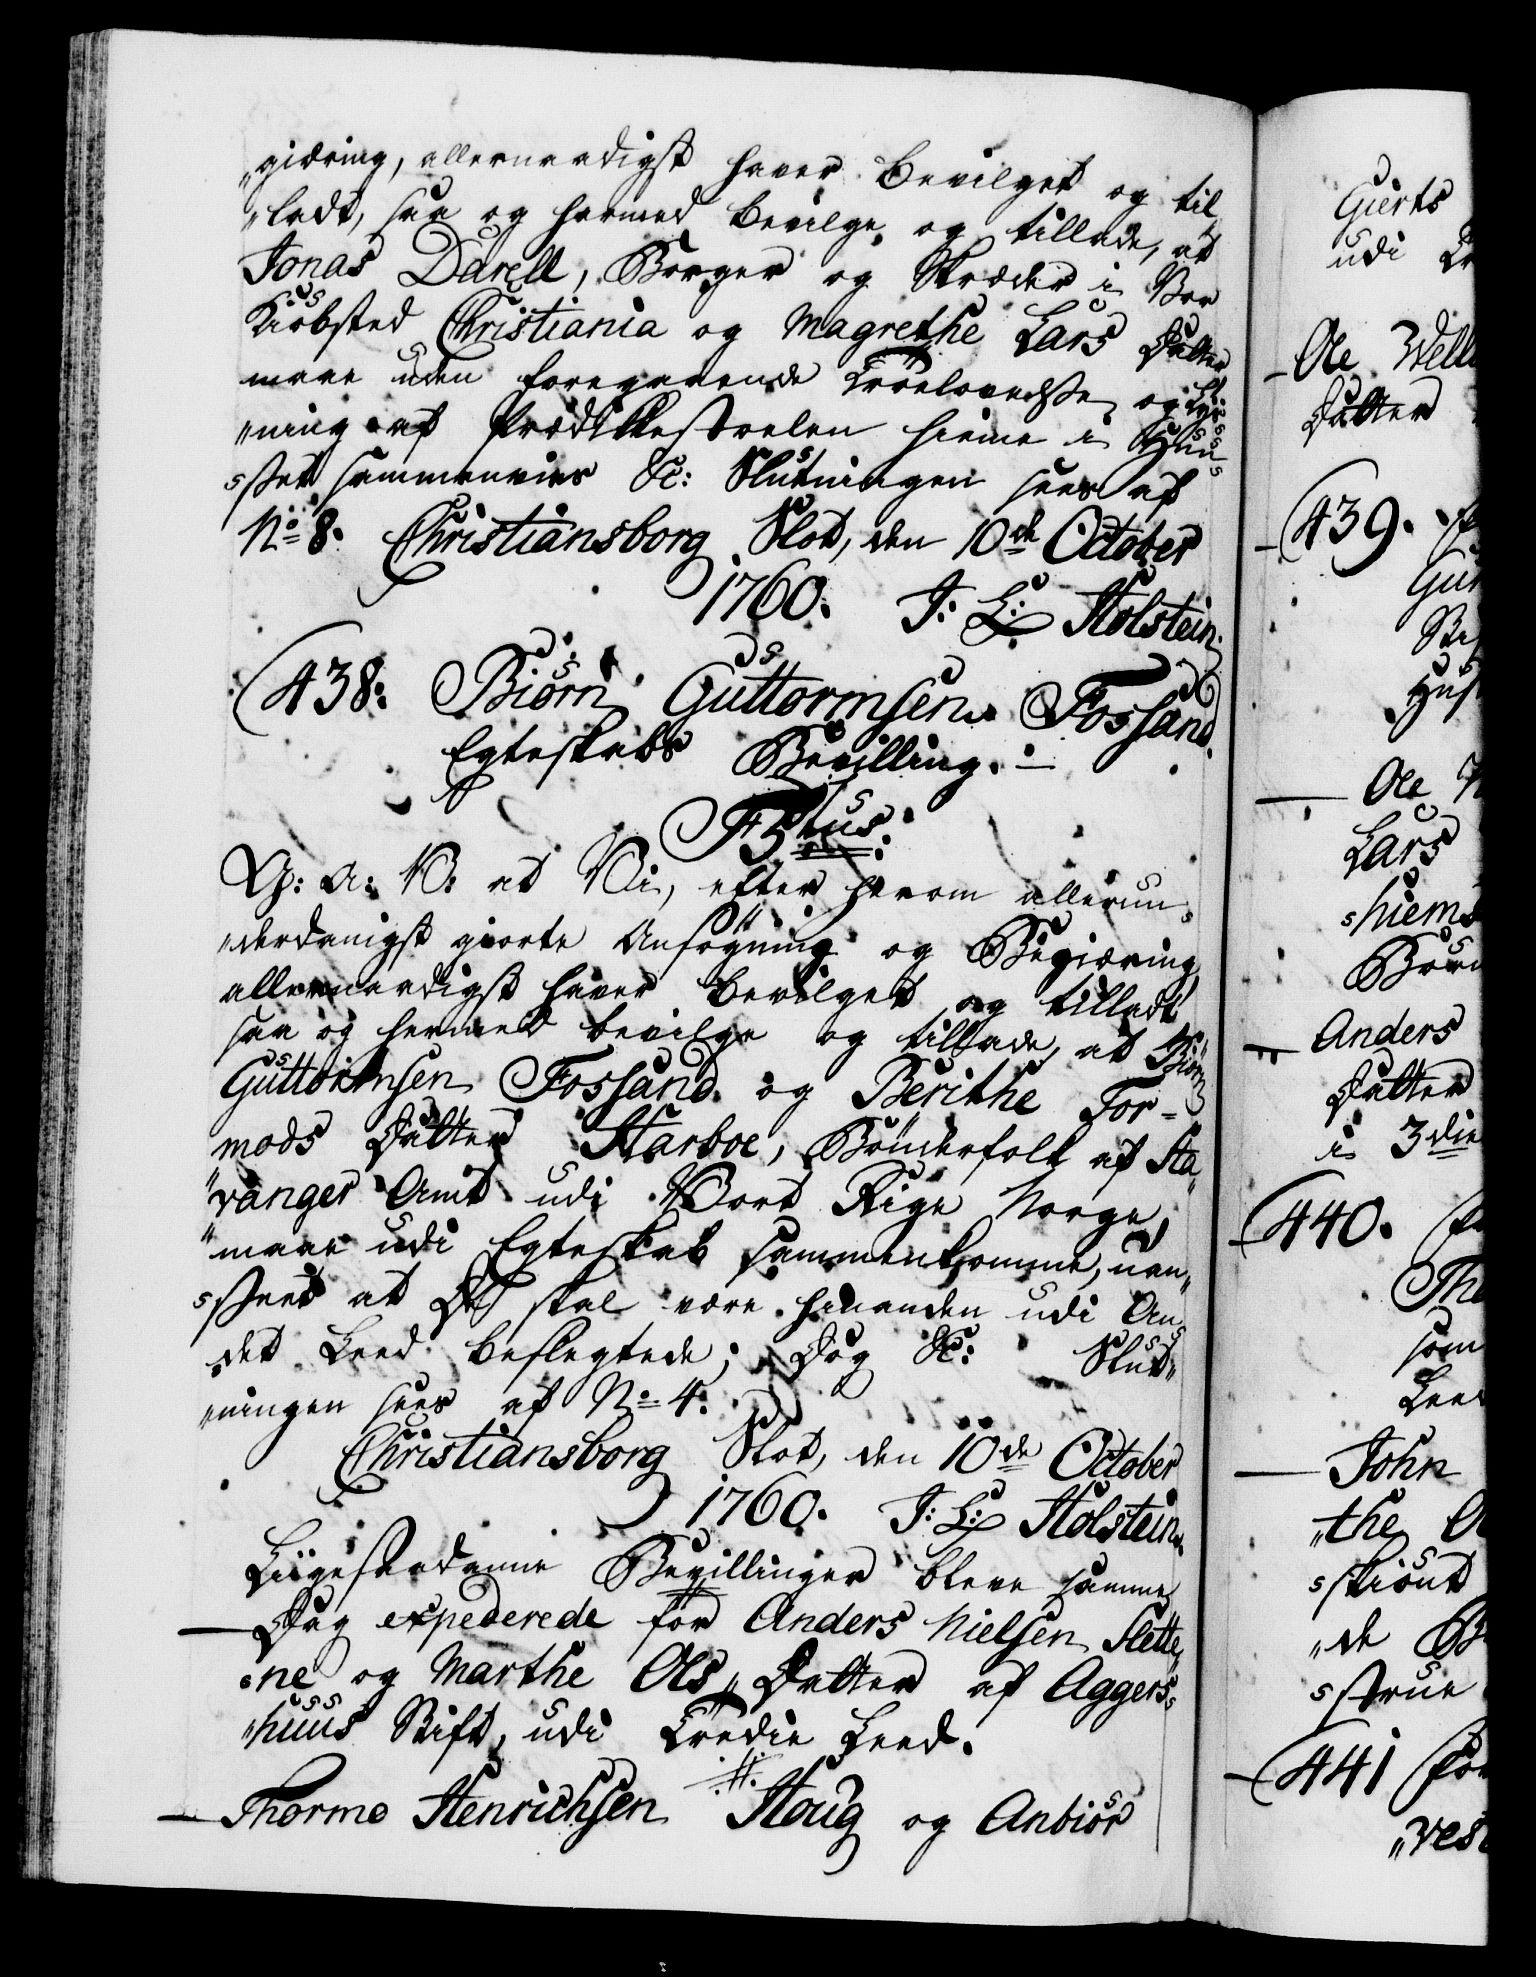 „giæring, allernaadigst haver bevilget og til„
„ladt, saa og hermed bevilge og tillade, at
Jonas Darell, Borger og Skræder i Vor
Kiöbsted Christiania og Magrethe Lars Datter
maae uden foregaaende Troelovelse, og Lys„
„ning af Prædikkestoelen hieme i Huu„
„set sammenvies &c: Slutningen sees af
No 8. Christiansborg Slot, den 10de October
1760. J: L: Holstein.
438. Biörn Guttormsen Fossand
Egteskabs Bevilling.
F5tus:
G: A: V: at Vi, efter herom allerun„
„derdanigst giorte Ansögning og Begiæring
allernaadigst haver bevilget og tilladt
saa og hermed bevilge og tillade, at Biörn
Guttormsen Fossand og Berithe Tor„
mods Datter Harboe, Bönderfolk af Sta„
„vanger Amt udi Vort Rige Norge,
„maae udi Egteskab sammenkomme, uan„
„seet at De skal være hinanden udi An„
det Leed beslegtede; Dog &c: Slut„
„ningen sees af No 4.
Christiansborg Slot, den 10de October
1760. J: L: Holstein.
Liigesaadanne Bevillinger bleve samme
Dag expederede for Anders Nielsen Slette„
„ne og Marthe Ols„ Datter af Aggers„
„huus Stift, udi Tredie Leed.
Thormo Henrichsen Houg og Anbiör
Gierts
udi
Ole Well
Datter
439.
Ole
Lars
„hiems
Börn
Anders
Datter
i 3die
440.
som
Leed
John
„the
„skiönt
„de
„strue
441
„vest